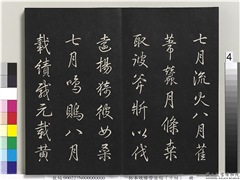 七月流火八月萑
葦蠶月條桑
取彼斧斨以伐
遠揚猗彼女桑
七月鳴鵙八月
載績載元載黃
4